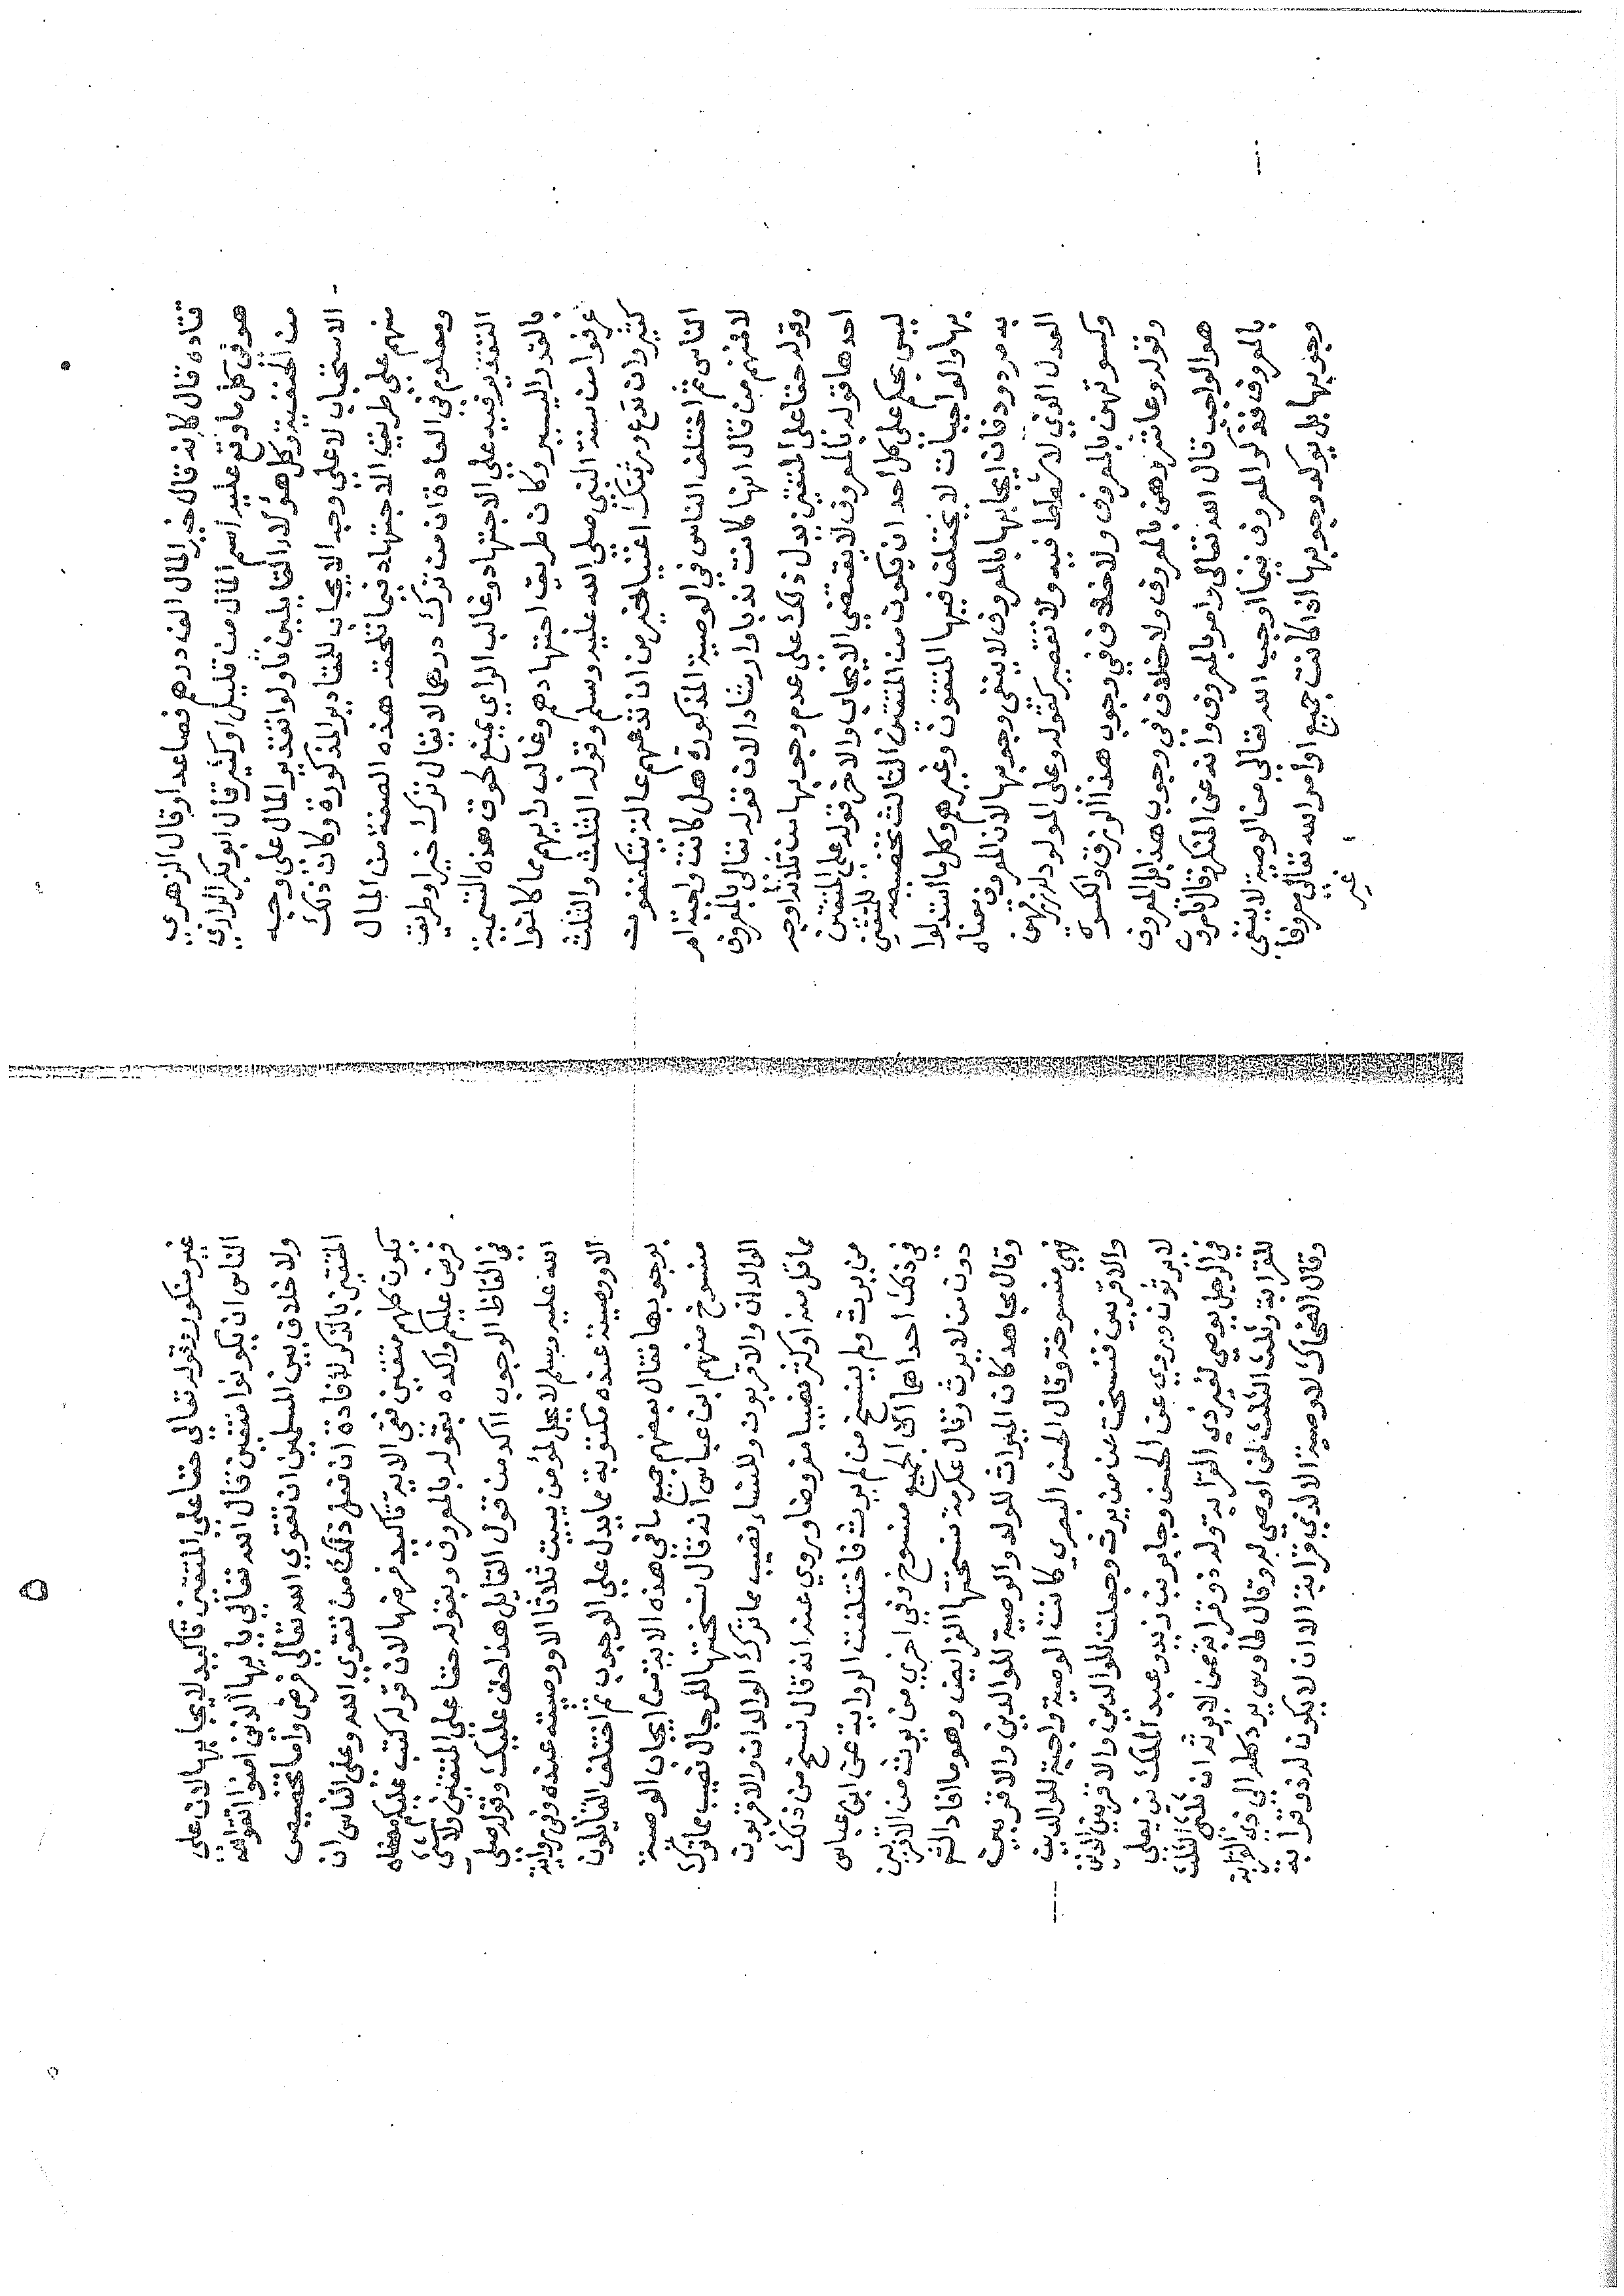 قتادة قال كانه قال خير المال الف درهم فصاعدا وقال الزهري
هو في كل ما وقع عليه اسم المال من قليل او كثير قال ابو بكر الرازي
من الحنفية وكل هؤلاء القايلين تأولوا تقدير المال على وجه
الاستحباب لا على وجه الايجاب للمقادير المذكورة وكان ذلك
منهم على طريقة الاجتهاد فيما تلحقه هذه الصفة من المال
ومعلوم في العادة ان من ترك درهما لا يقال ترك خيرا وطريق
التقدير فيه على الاجتهاد وغالب الراي يمنع لحوق هذه التسمية
بالقدر اليسير وكان طريق اجتهادهم وغالب رايهم مما كانوا
عرفوا من سنة النبي صلى الله عليه وسلم وقوله الثلث والثلث
كثير وان تدع ورثتك اغنيا خير من ان تدعهم عالة يتكففون
الناس ثم اختلف الناس في الوصية المذكورة هل كانت واجبة ام
لا فمنهم من قال انها كانت ندبا وارشادا لان قوله تعالى بالمعروف
وقوله حقا على المتقين يدل ذلك على عدم وجوبها من ثلاثة اوجه
احدها قوله بالمعروف لا يقتضي الايجاب والاخر قوله على المتقين
ليس يحكم على كل احد ان يكون من المتقين الثالث تخصيصه للمتقين
بها والواجبات لا يختلف فيها المتقون وغيرهم وكل ما استدلوا
به مردود فان ايجابها بالمعروف لا ينفي وجوبها لان المعروف معناه
العدل الذي لا شطط فيه ولا تقصير كقوله وعلى المولود له رزقهن
وكسوتهن بالمعروف ولا خلاف في وجوب هذا الرزق والكسوة
وقوله وعاشروهن بالمعروف ولا خلاف في وجوب هذا بل المعروف
هو الواجب قال الله تعالى وامر بالمعروف وانه عن المنكر وقال تامرون
بالمعروف فذكر المعروف فيما اوجب الله تعالى من الوصية لا ينفي
وجوبها بل يوكد وجوبها اذا كانت جميع اوامر الله تعالى معروفا
غير
غير منكور وقوله تعالى حقا على المتقين تاكيد لايجابها لان على
الناس ان يكونوا متقين قال الله تعالى يا ايها الذين امنوا اتقوا الله
ولا خلاف بين المسلمين ان تقوي الله تعالى فرض واما تخصيص
المتقين بالذكر لافادة ان فعل ذلك من تقوي الله وعلى الناس ان
يكون كلهم متقين ففي الاية تاكيد فرضها لان قوله كتب عليكم معناه
فرض عليكم واكده بقوله بالمعروف وبقوله حقا على المتقين ولا شي
في الفاظ الوجوب اكد من قول القايل هذا حق عليك وقوله صلى
الله عليه وسلم لا يحل لمؤمن يبيت ثلاثا الا ووصيته عنده وفي رواية
الا ووصيته عنده مكتوبة مما يدل على الوجوب ثم اختلف القايلون
بوجوبها فقال بعضهم جميع ما في هذه الاية من ايجاب الوصية
منسوخ منهم ابن عباس انه قال نسختها للرجال نصيب مما ترك
الوالدان والاقربون وللنساء نصيب مما ترك الوالدان والاقربون
مما قل منه او كثر نصيبا مفروضا وروي عنه انه قال نسخ من ذلك
من يرث ولم ينسخ من لم يرث فاختلفت الرواية عن ابن عباس
في ذلك احداها ان الجميع منسوخ وفي اخري من يرث من الاقربين
دون من لا يرث وقال عكرمة نسختها الفرايض وهو ما افاد الثم
وقال مجاهد كان الميراث للولد والوصية للوالدين والاقربين
فهي منسوخة وقال الحسن البصري كانت الوصية واجبة للوالدين
والاقربين فنسخت من من يرث وجعلت للوالدين والاقربين الذين
لا يرثون وروي عن الحسن وجابر بن زيد وعبد الملك بن يعلي
في الرجل يوصي لغير ذي القرابة وله ذو قرابة ممن لا يرثه ان ثلثي الثلث
للقرابة وثلث الثلث لمن اوصي له وقال طاوس يرد كله الي ذوي القرابة
وقال الضحاك لا وصية الا لذي قرابة الا ان لا يكون له ذو قرابة